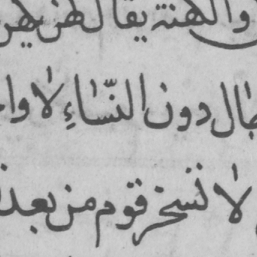 والهنة يقال لهن يهن
طال دون النّساء لا وا
لا تسخر قوم من بعد